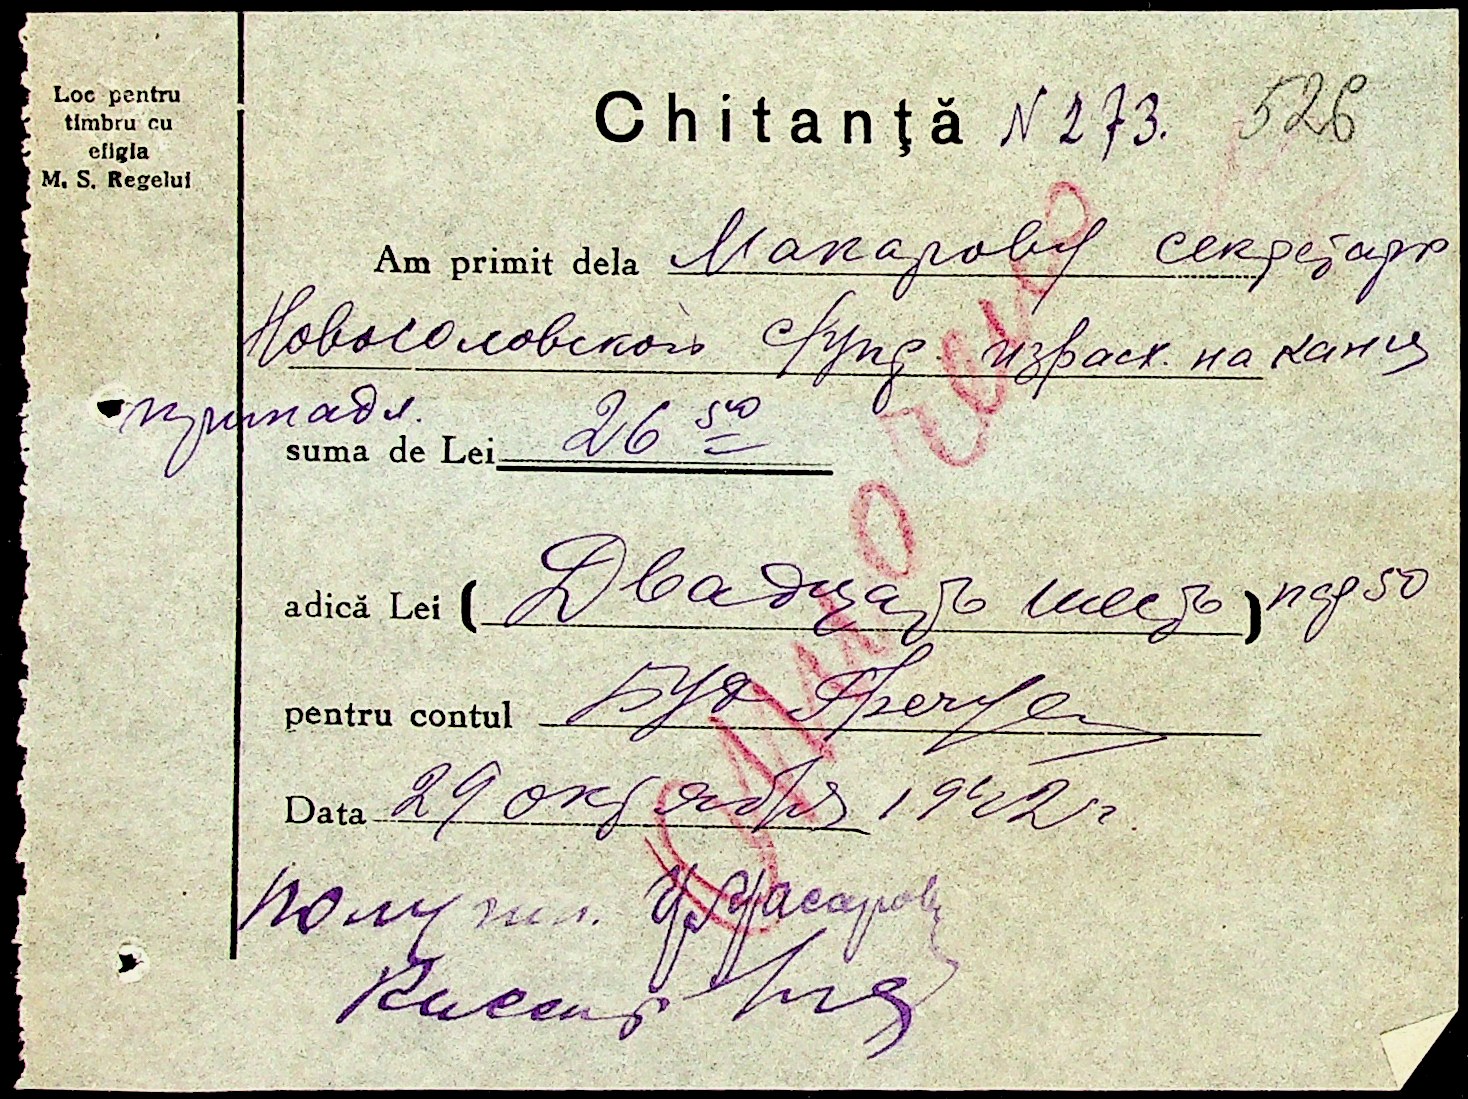 Loc pentru
timbru cu
efigia
M. S. Regelui
Chitanţă N 273. 526
Am primit dela Макарову секретарю
Новоселовского израсх. на канц
принадл.
suma de Lei 26 50
adică Lei (Двадцать шесть) пф 50
pentru contul
Data 29 октября 1942 г.
Получил.
Кассир
Оплочено